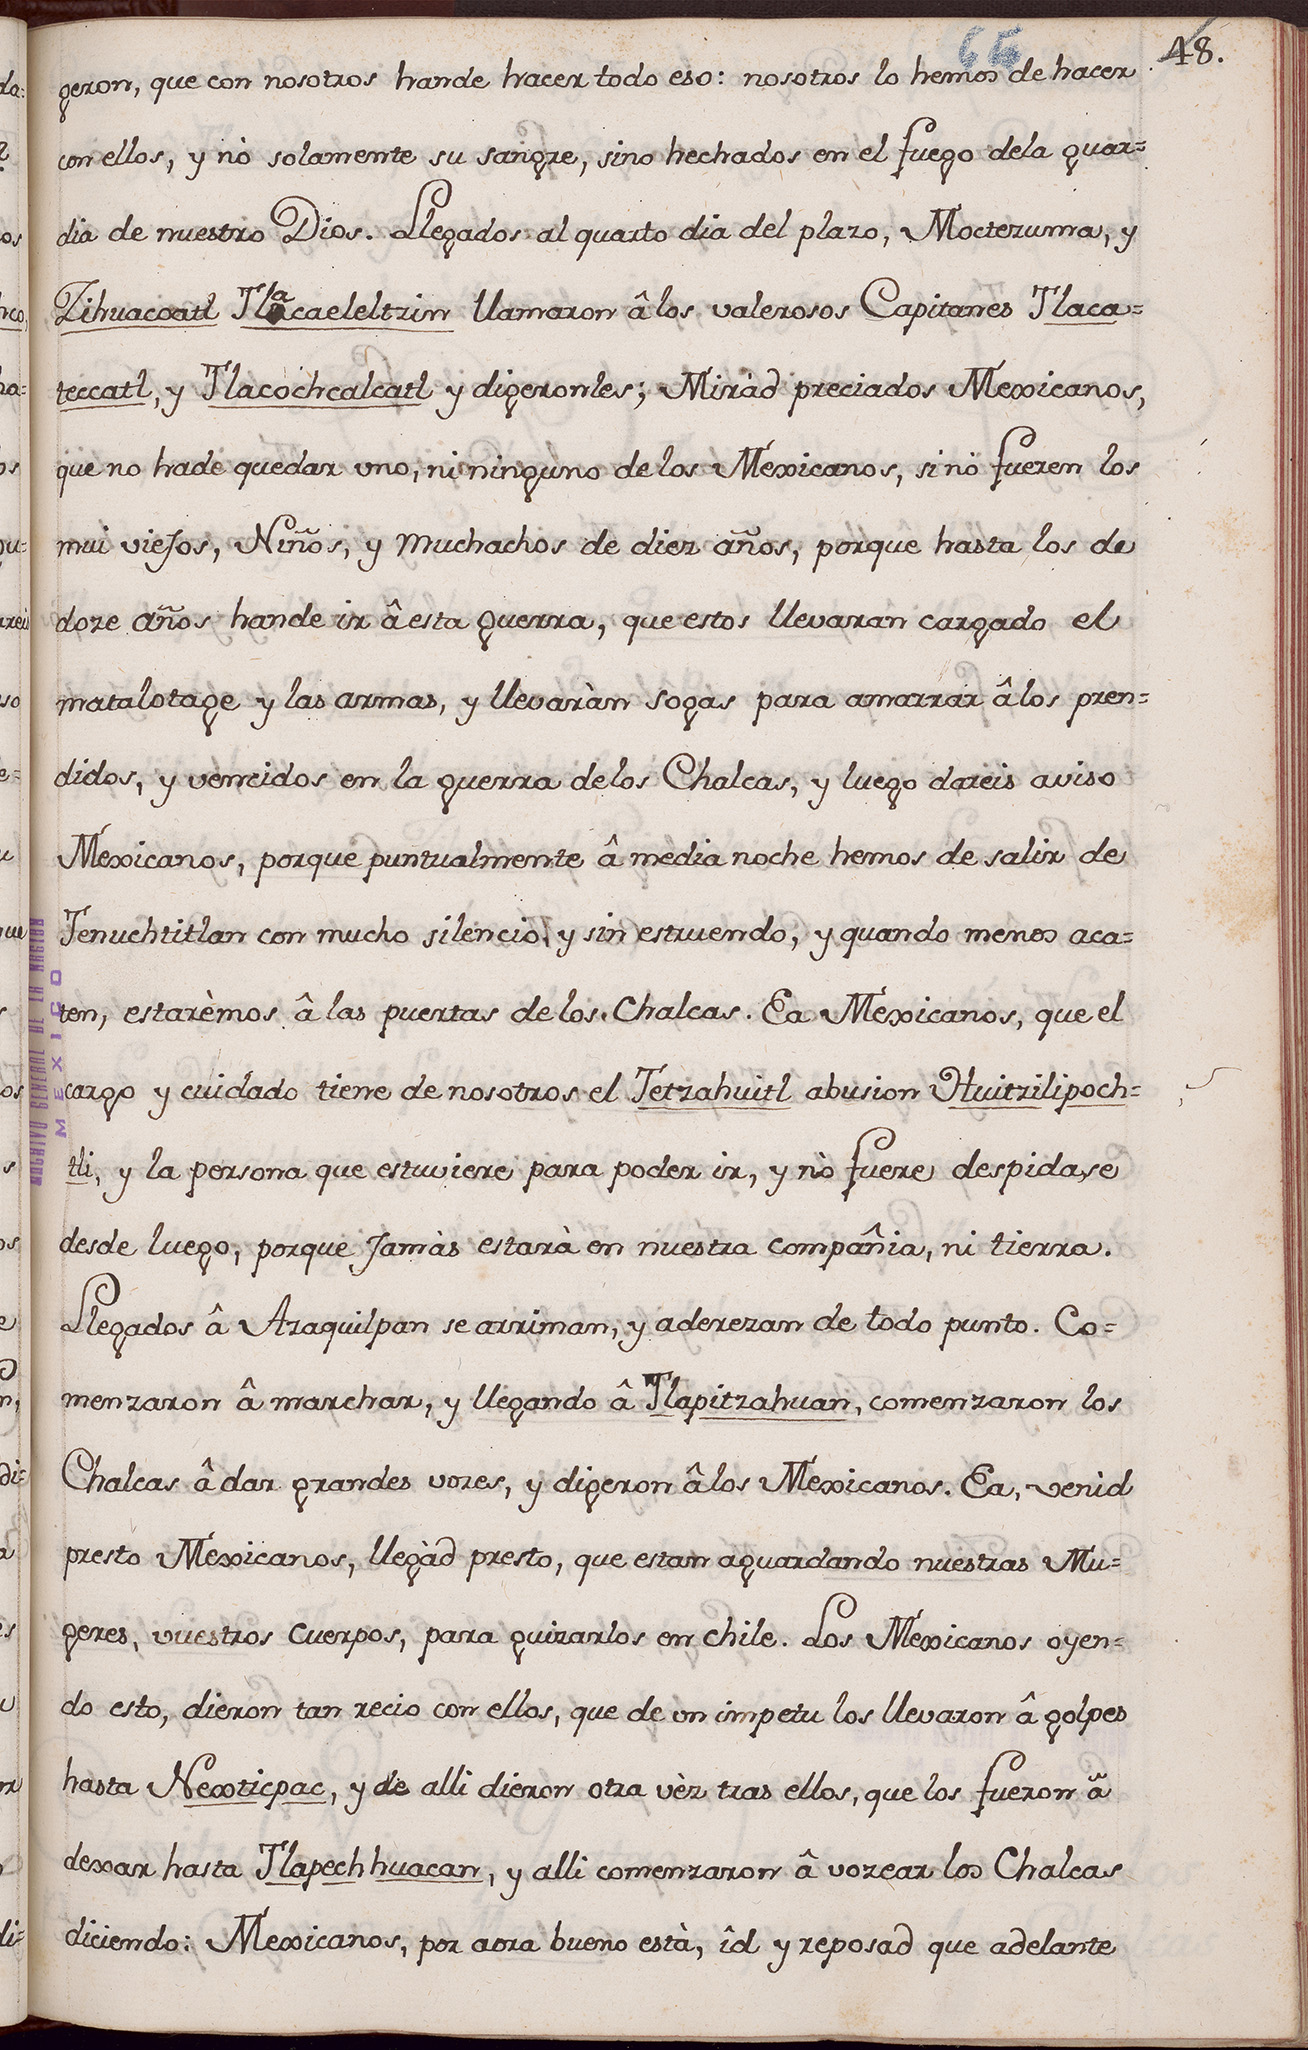 65 48.
geron, que con nosotros hande hacer todo eso: nosotros lo hemos de hacer
con ellos, y nò solamente su sangre, sino hechados en el fuego dela guar=
dia de nuestro Dios. Llegados al quarto dia del plazo, Moctezuma, y
Zihuacoatl Tlacaeleltzin llamaron â los valerosos Capitanes Tlaca=
teccatl, y Tlacochcalcatl y digeronles; Miràd preciados Mexicanos,
que no hade quedar vno, ni ninguno de los Mexicanos, si nò fueren los
mui viejos, Niños, y Muchachos de diez años, porque hasta los de
doze años hande ir â esta guerra, que estos llevaran cargado el
matalotage y las armas, y llevaràn sogas para amarrar â los pren=
didos, y vencidos en la guerra delos Chalcas, y luego dareis aviso
Mexicanos, porque puntualmente â media noche hemos de salir de
Tenuchtitlan con mucho silencio, y sin estruendo, y quando menos aca=
ten, estarèmos â las puertas de los Chalcas. Ea Mexicanos, que el
cargo y cuidado tiene de nosotros el Tetzahuitl abusion Huitzilipoch=
tli, y la persona que estuviere para poder ir, y nò fuere despidase
desde luego, porque Jamàs estarà en nuestra compañia, ni tierra.
Llegados â Azaquilpan se arriman, y aderezan de todo punto. Co=
menzaron â marchar, y llegando â Tlapitzahuan, comenzaron los
Chalcas â dar grandes vozes, y digeron â los Mexicanos. Ea, venid
presto Mexicanos, llegàd presto, que estan aguardando nuestras Mu=
geres, vuestros cuerpos, para guizarlos en chile. Los Mexicanos oyen=
do esto, dieron tan recio con ellos, que de vn impetu los llevaron â golpes
hasta Nexticpac, y de alli dieron otra vèz tras ellos, que los fueron â
dexar hasta Tlapechhuacan, y alli comenzaron â vozear los Chalcas
diciendo: Mexicanos, por aora bueno està, îd y reposad que adelante
ARCHIVO GENERAL DE LA NACION
MEXICO